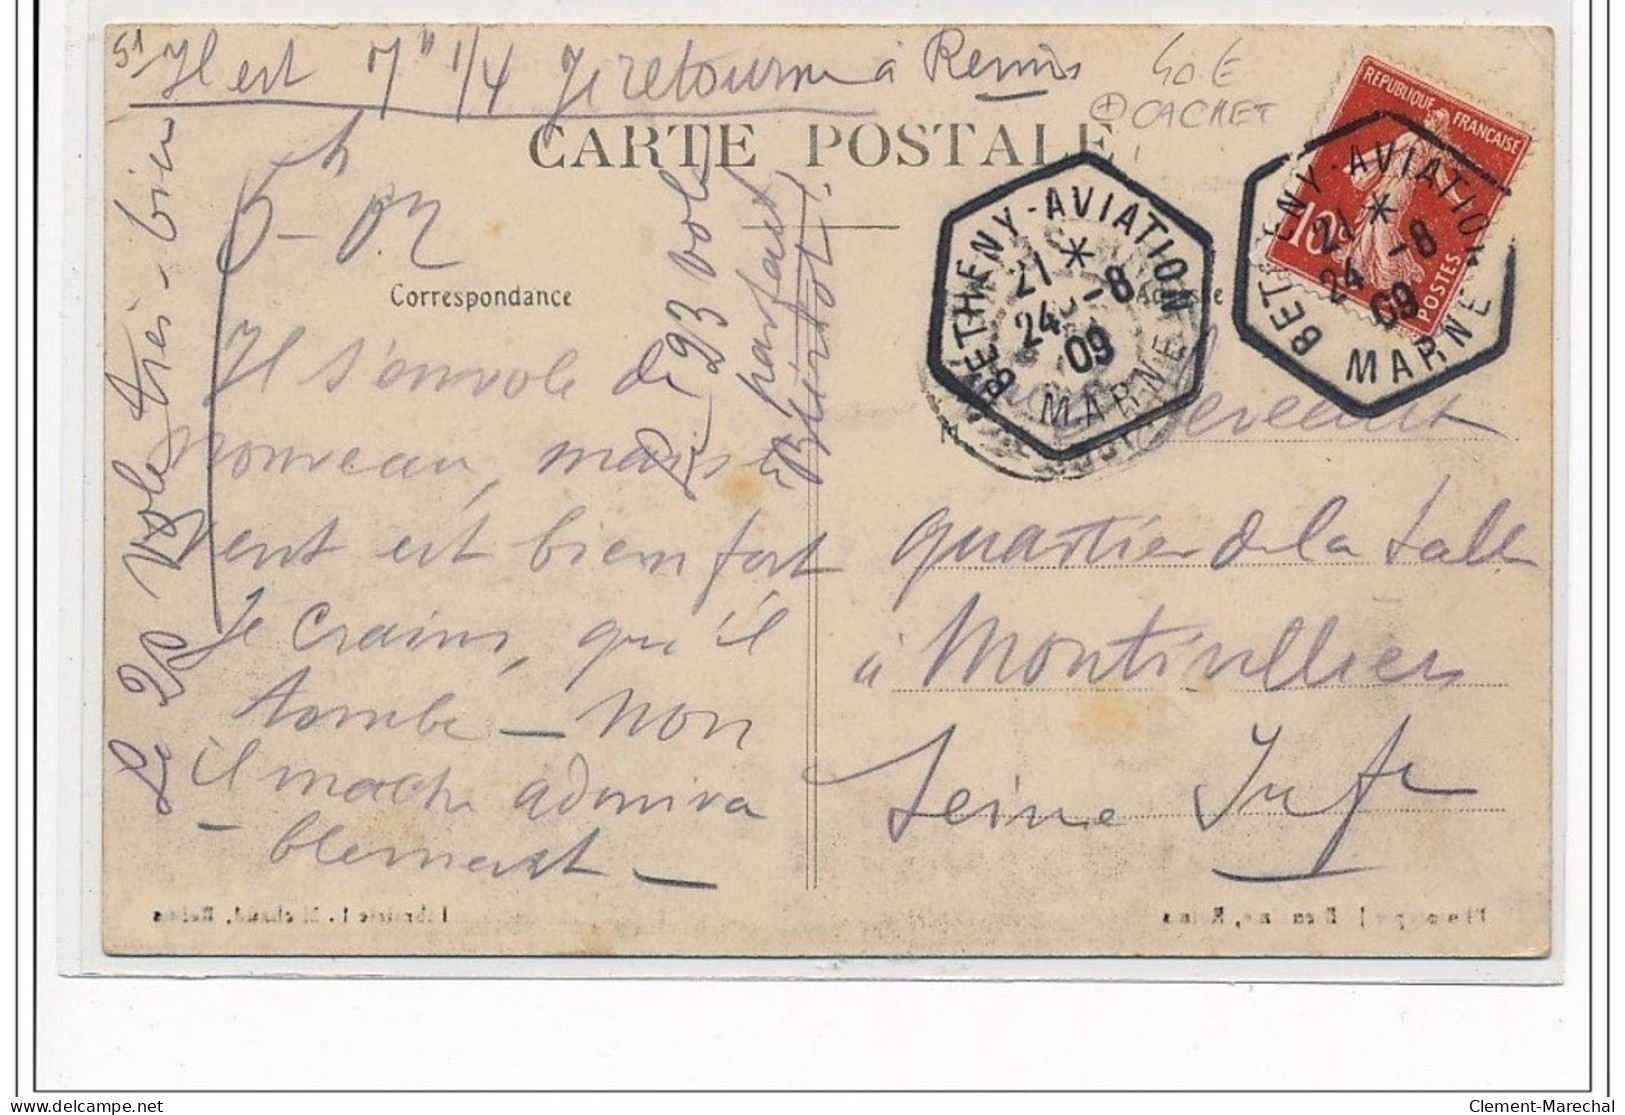 Il est 7h 1/4 Je retourne à Reims
40 €
+ CACHET
CARTE POSTALE
REPUBLIQUE FRANÇAISE
10c
POSTES
BETHENY-AVIATION
21 *
24 -8
09
MARNE
BETHENY-AVIATION
21 *
24 -8
09
MARNE
Correspondance
Adresse
5h
Il s'envole de
nouveau, mais le
vent est bien fort
Je crains, qu'il
tombe – non
il marche admira
– blement –
Le 20 vole très-bien
Le 23 vole
parfait
Blériot
quartier de la Salle
à Montivilliers
Seine Infre
Librairie L. Michaud, Reims
Reims
Clement-Marechal